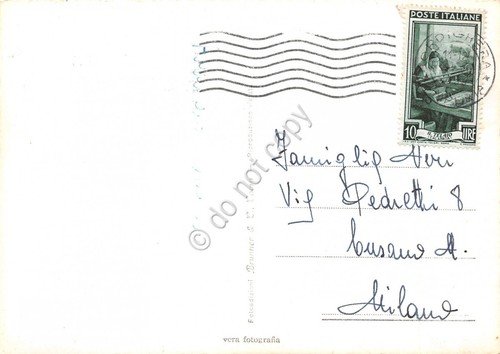 POSTE ITALIANE
10 LIRE
Famiglia Herr
Via Pedretti 8
Cusano M.
Milano
vera fotografia
do not copy